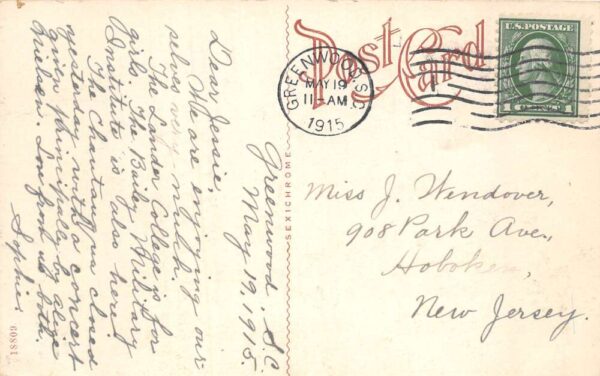 Post Card
U.S. POSTAGE
GREENWOOD, S.C.
MAY 19
11 - AM
1915
Greenwood, S.C.
May 19, 1915.
Dear Jessie,
We are enjoying our
selves very much.
The Lander College is for
girls. The Bailey Military
Institute is also here.
The Chautauqua closed
yesterday with a concert
given principally by Alice
Nielsen. Love from us both.
Sophie.
Miss J. Wendover,
908 Park Ave.,
Hoboken,
New Jersey.
SEXICHROME
18809